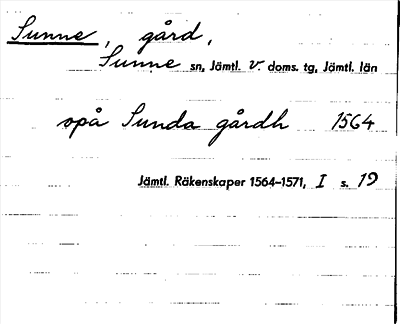 Sunne, gård,
Sunne sn, Jämtl. v. doms. tg, Jämtl. län
opå Sunda gårdh 1564
Jämtl. Räkenskaper 1564-1571, I s. 19